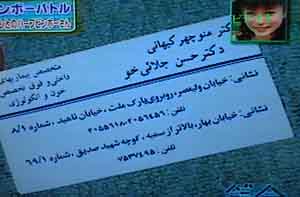 ンボーバトル
دکتر منوچهر کیهانی
دکتر حسن جلالی خو
متخصص بیماریهای
داخلی و فوق تخصص
خون و انکولوژی
نشانی: خیابان ولیعصر، روبروی پارک ملت، خیابان ناهید، شماره ۸/۱
تلفن: ۲۰۵۹۶۵۶-۲۰۵۵۶۱۸
نشانی: خیابان بهار، بالاتر از سمیه، کوچه شهید صدیق، شماره ۶۹/۱
تلفن: ۷۵۳۷۴۹۵